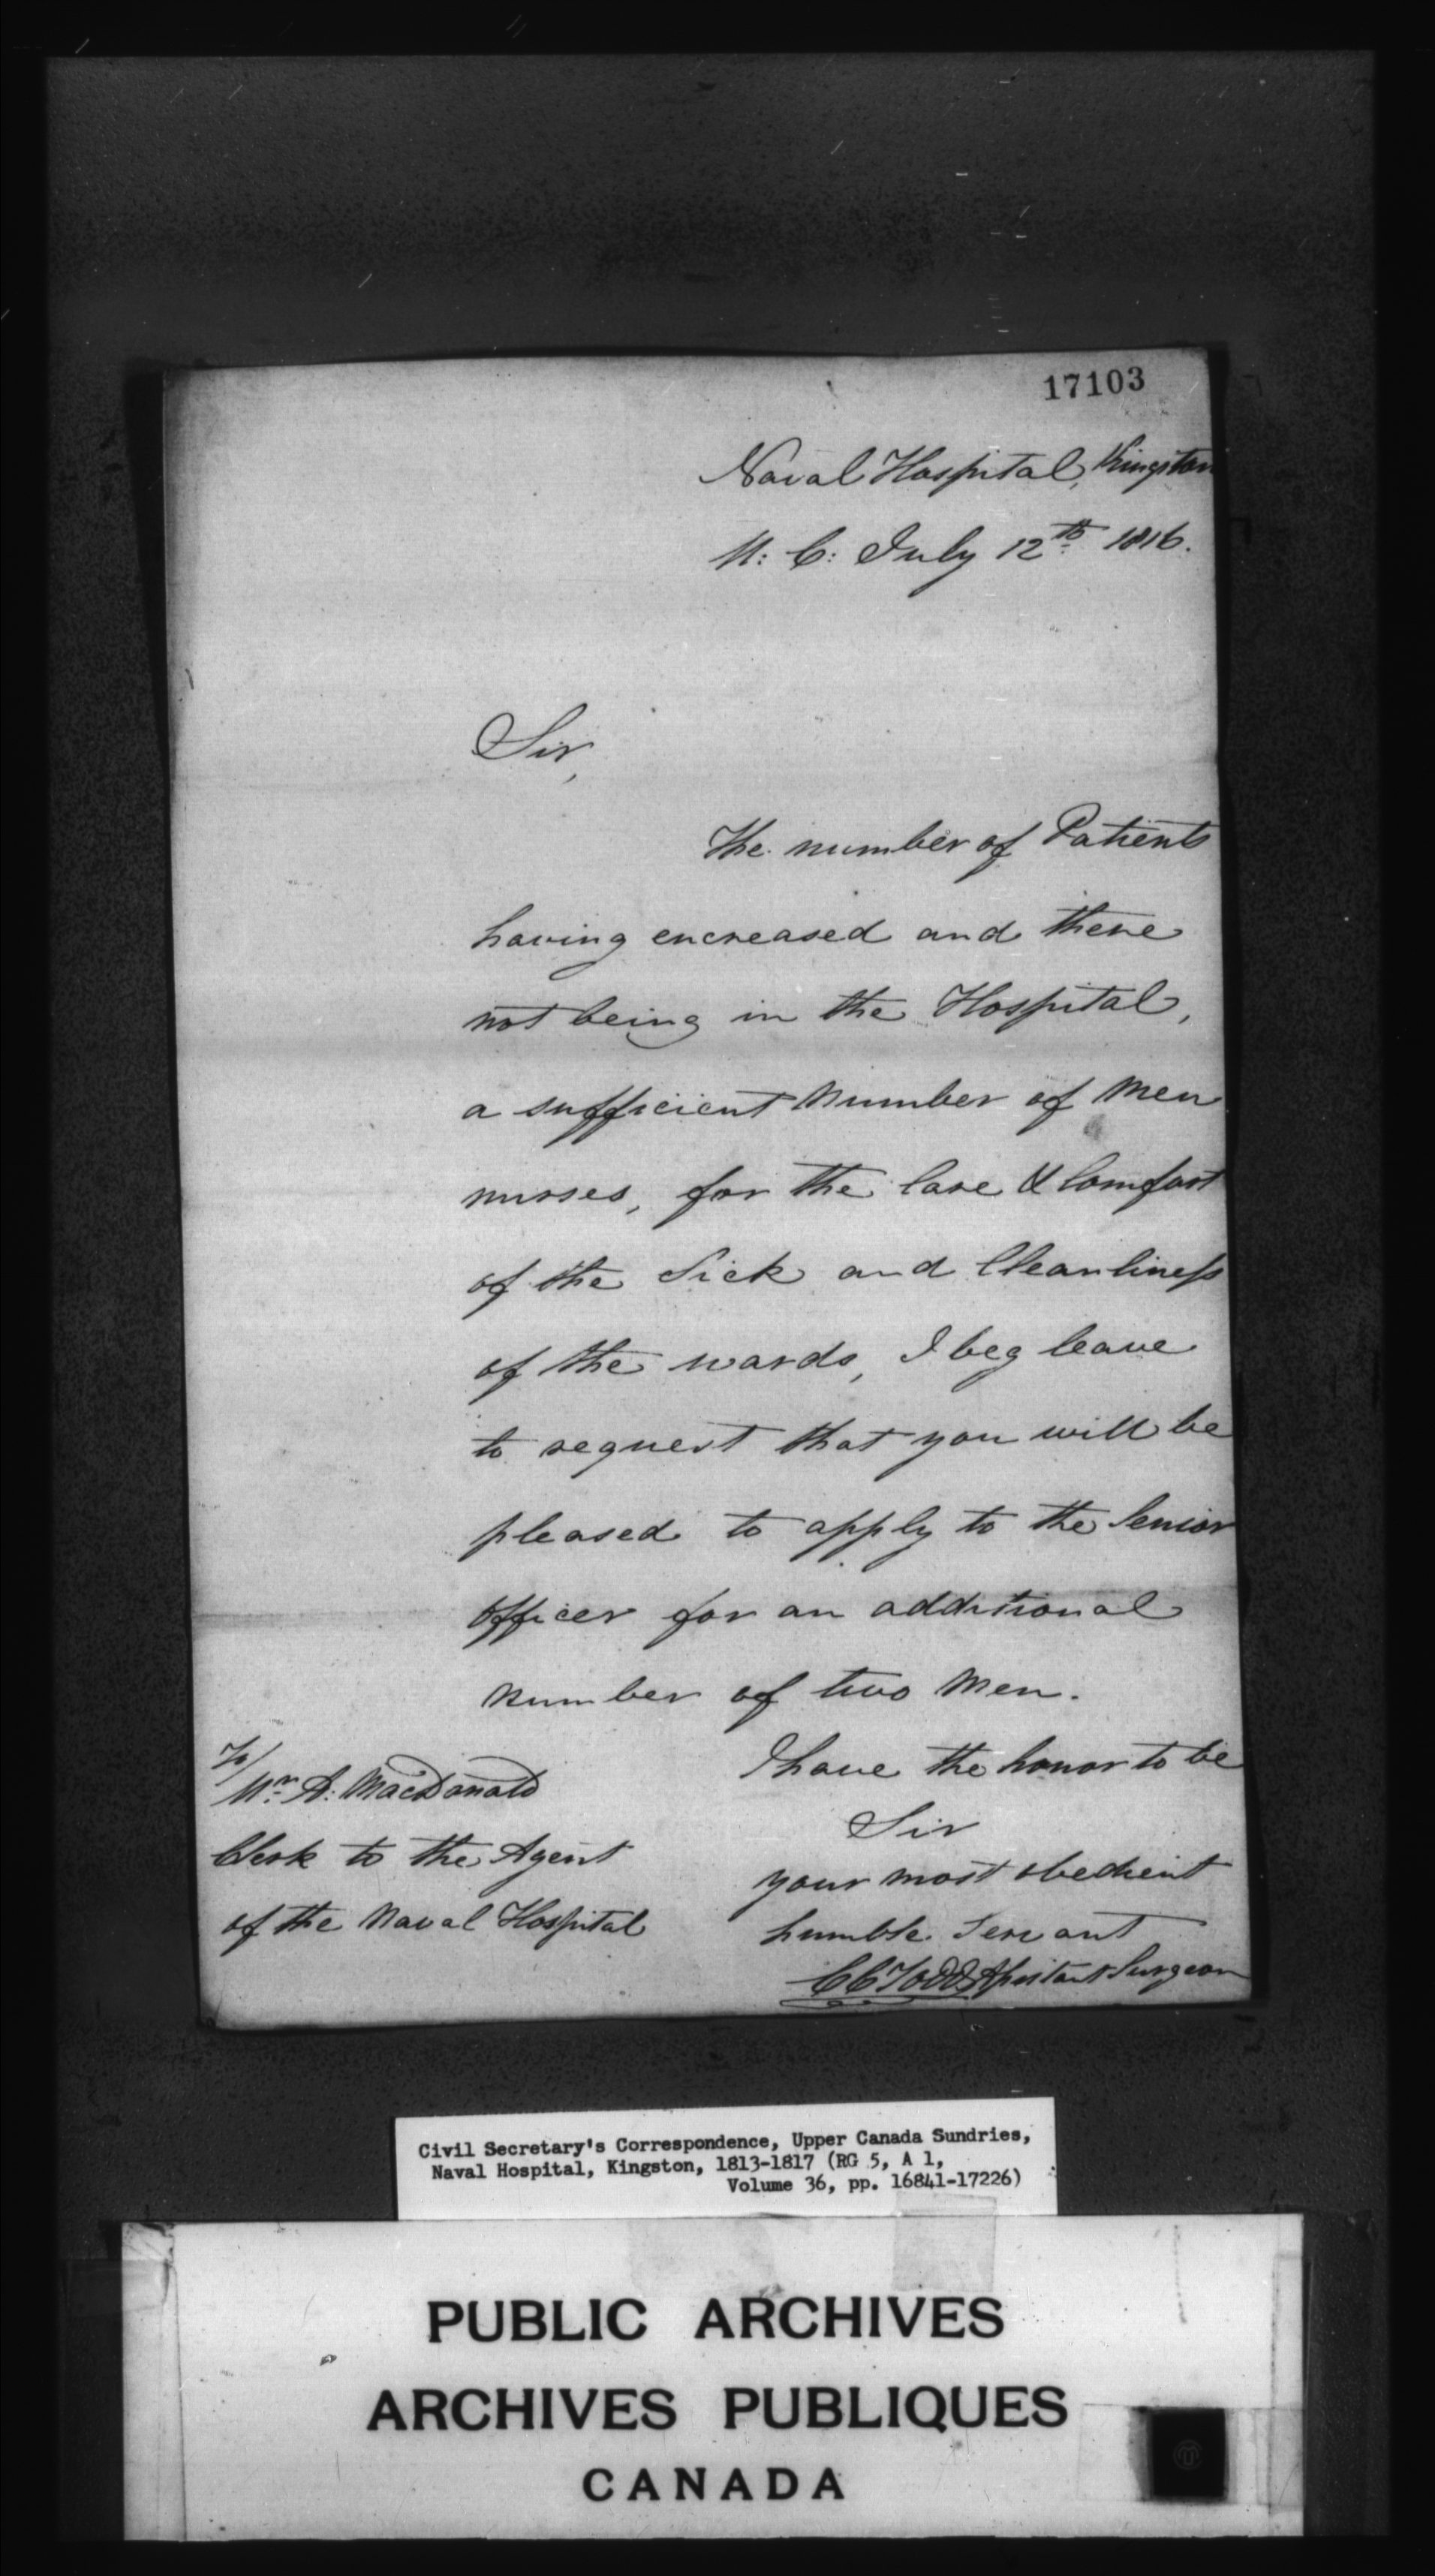 17103
Naval Hospital, Kingston
U: C: July 12th 1816.
Sir,
The number of Patients
having encreased and there
not being in the Hospital,
a sufficient number of men
nurses, for the Care & Comfort
of the Sick and Cleanliness
of the wards, I beg leave
to request that you will be
pleased to apply to the Senior
officer for an additional
number of two men.
I have the honor to be
Sir
your most obedient
humble Servant
CCTodd Assistant Surgeon
To/
Mr. A: MacDonald
Clerk to the Agent
of the Naval Hospital
Civil Secretary's Correspondence, Upper Canada Sundries,
Naval Hospital, Kingston, 1813-1817 (RG 5, A 1,
Volume 36, pp. 16841-17226)
PUBLIC ARCHIVES
ARCHIVES PUBLIQUES
CANADA